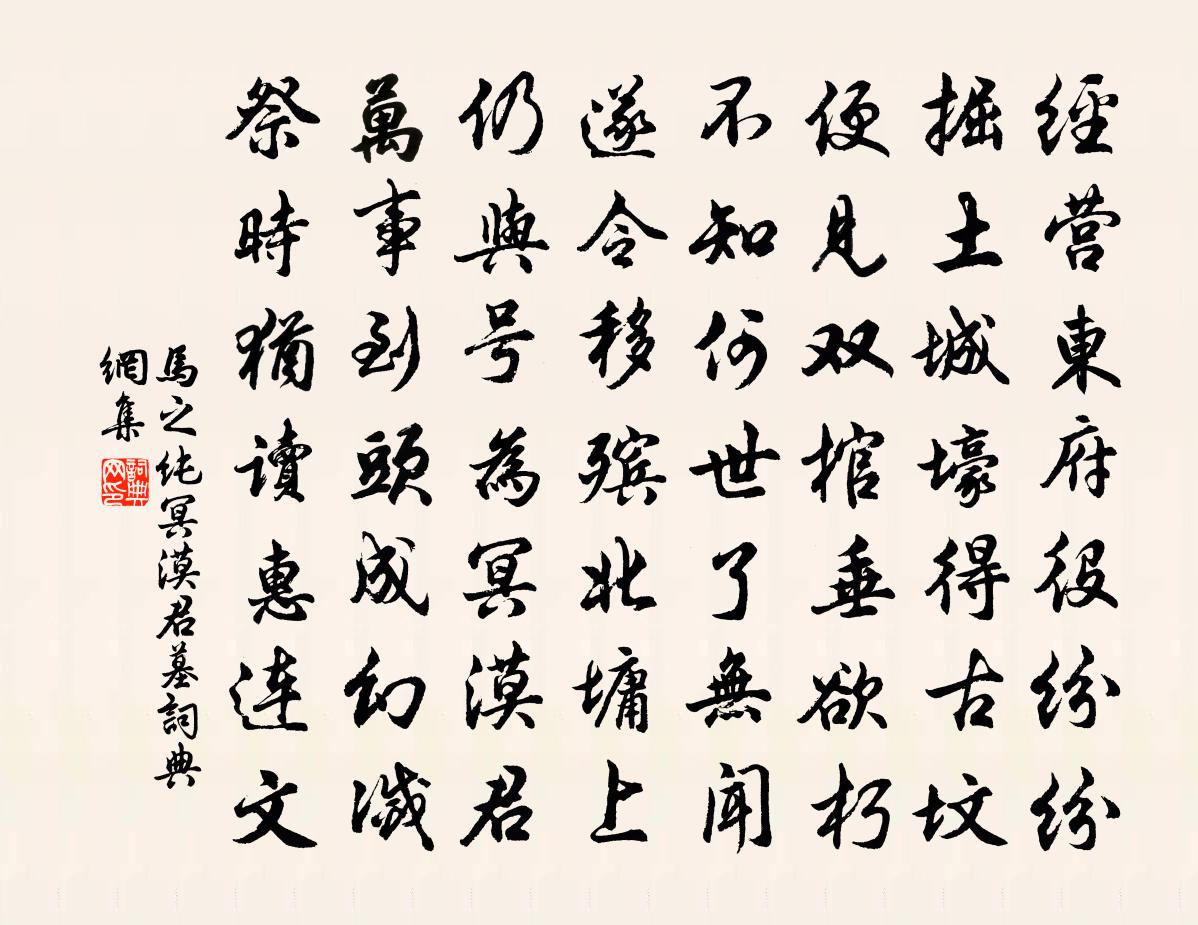 經营東府役纷纷
掘土城壕得古坟
便見双棺垂欲朽
不知何世了無聞
遂令移殡北墉上
仍與号為冥漠君
萬事到頭成幻滅
祭時猶讀惠连文
馬之纯冥漠君墓詞典
網集
詞典
网印